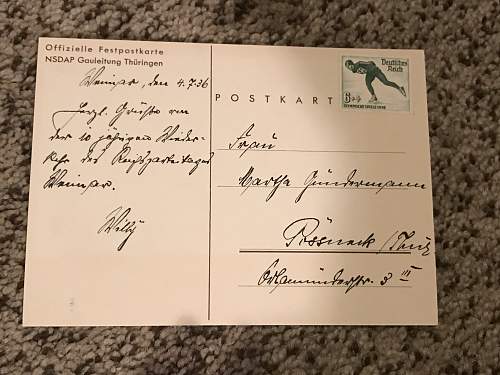 Offizielle Festpostkarte
NSDAP Gauleitung Thüringen
Weimar, den 4.7.36
Herzl. Grüße von
der 10 jährigen Wieder-
kehr des Reichsparteitages
Weimar.
Willy
POSTKARTE
Deutsches
Reich
6+4
Frau
Martha Gündermann
Pössneck / Thür
Orlamünderstr. 3 III